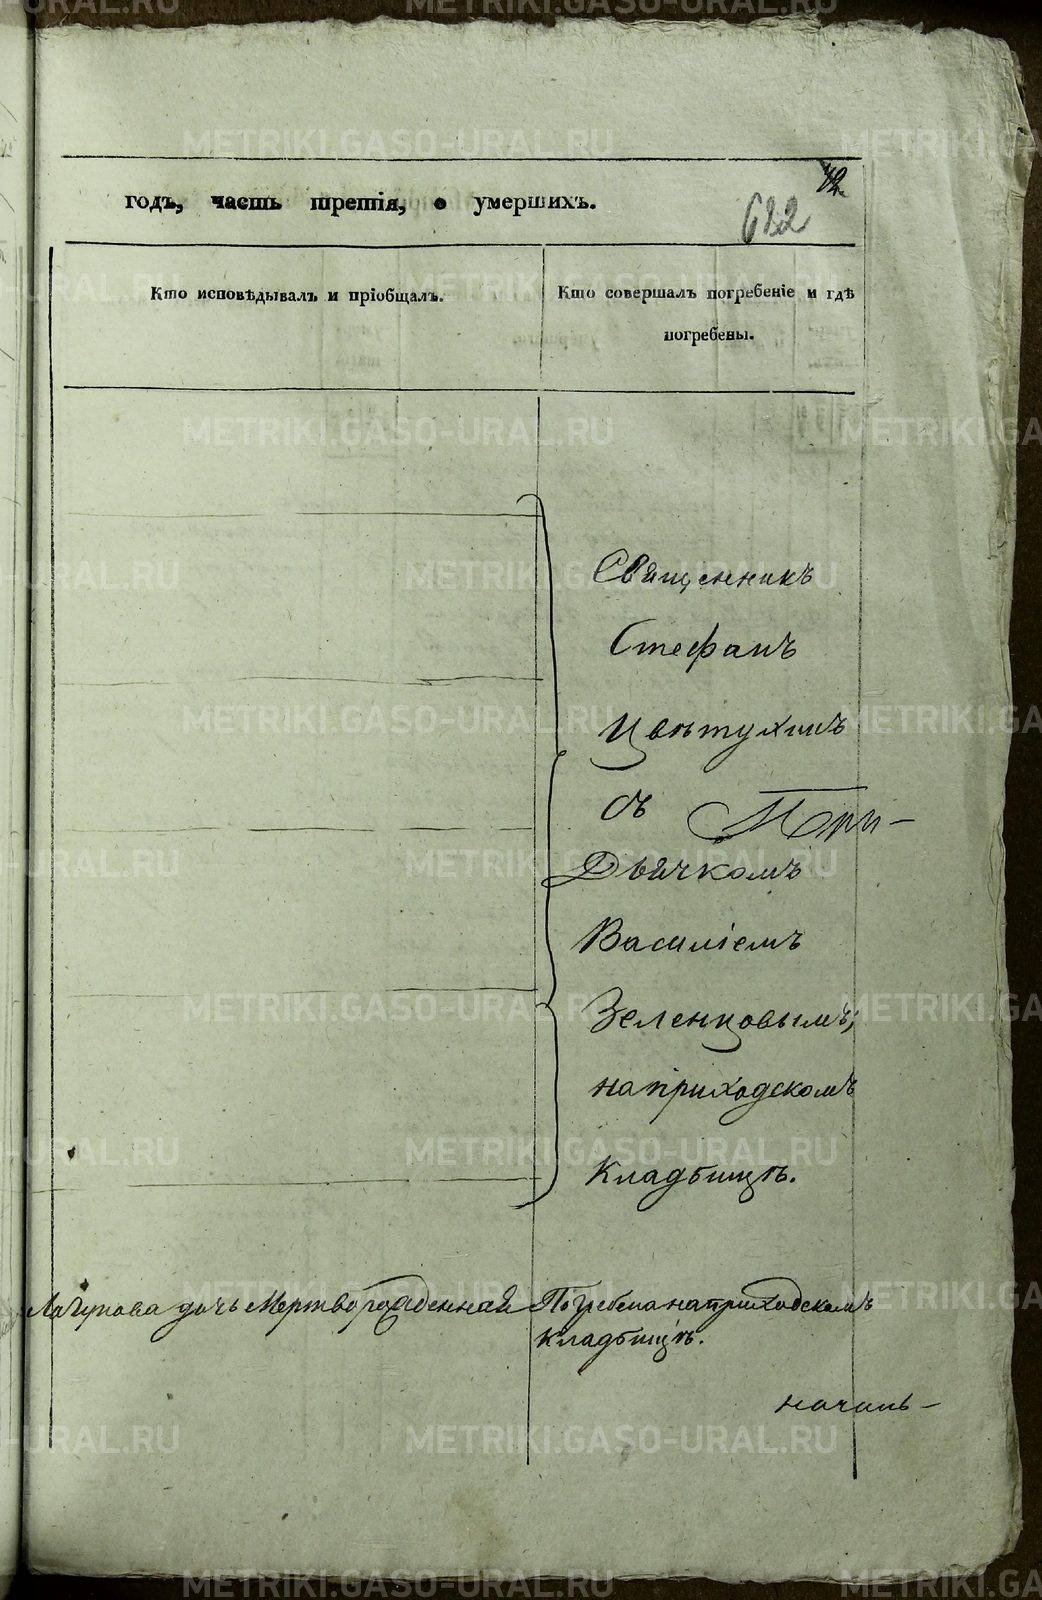 42
годъ, часть третія, о умершихъ.
682
Кто исповѣдывалъ и пріобщалъ.
Кто совершалъ погребеніе и гдѣ
погребены.
Священникъ
Стефанъ
Цвѣтухинъ
съ
При-
Дьячкомъ
Василіемъ
Зеленцовымъ;
на приходскомъ
Кладбищѣ.
дочь Мертворожденная
Погребена на приходскомъ
кладбищѣ.
METRIKI.GASO-URAL.RU